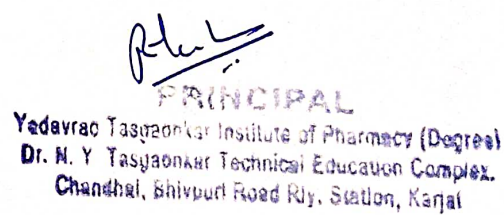 PRINCIPAL
Yadavrao Tasgaonkar Institute of Pharmacy (Degree)
Dr. N. Y Tasgaonkar Technical Education Complex.
Chandhai, Bhivpuri Road Rly. Station, Karjat